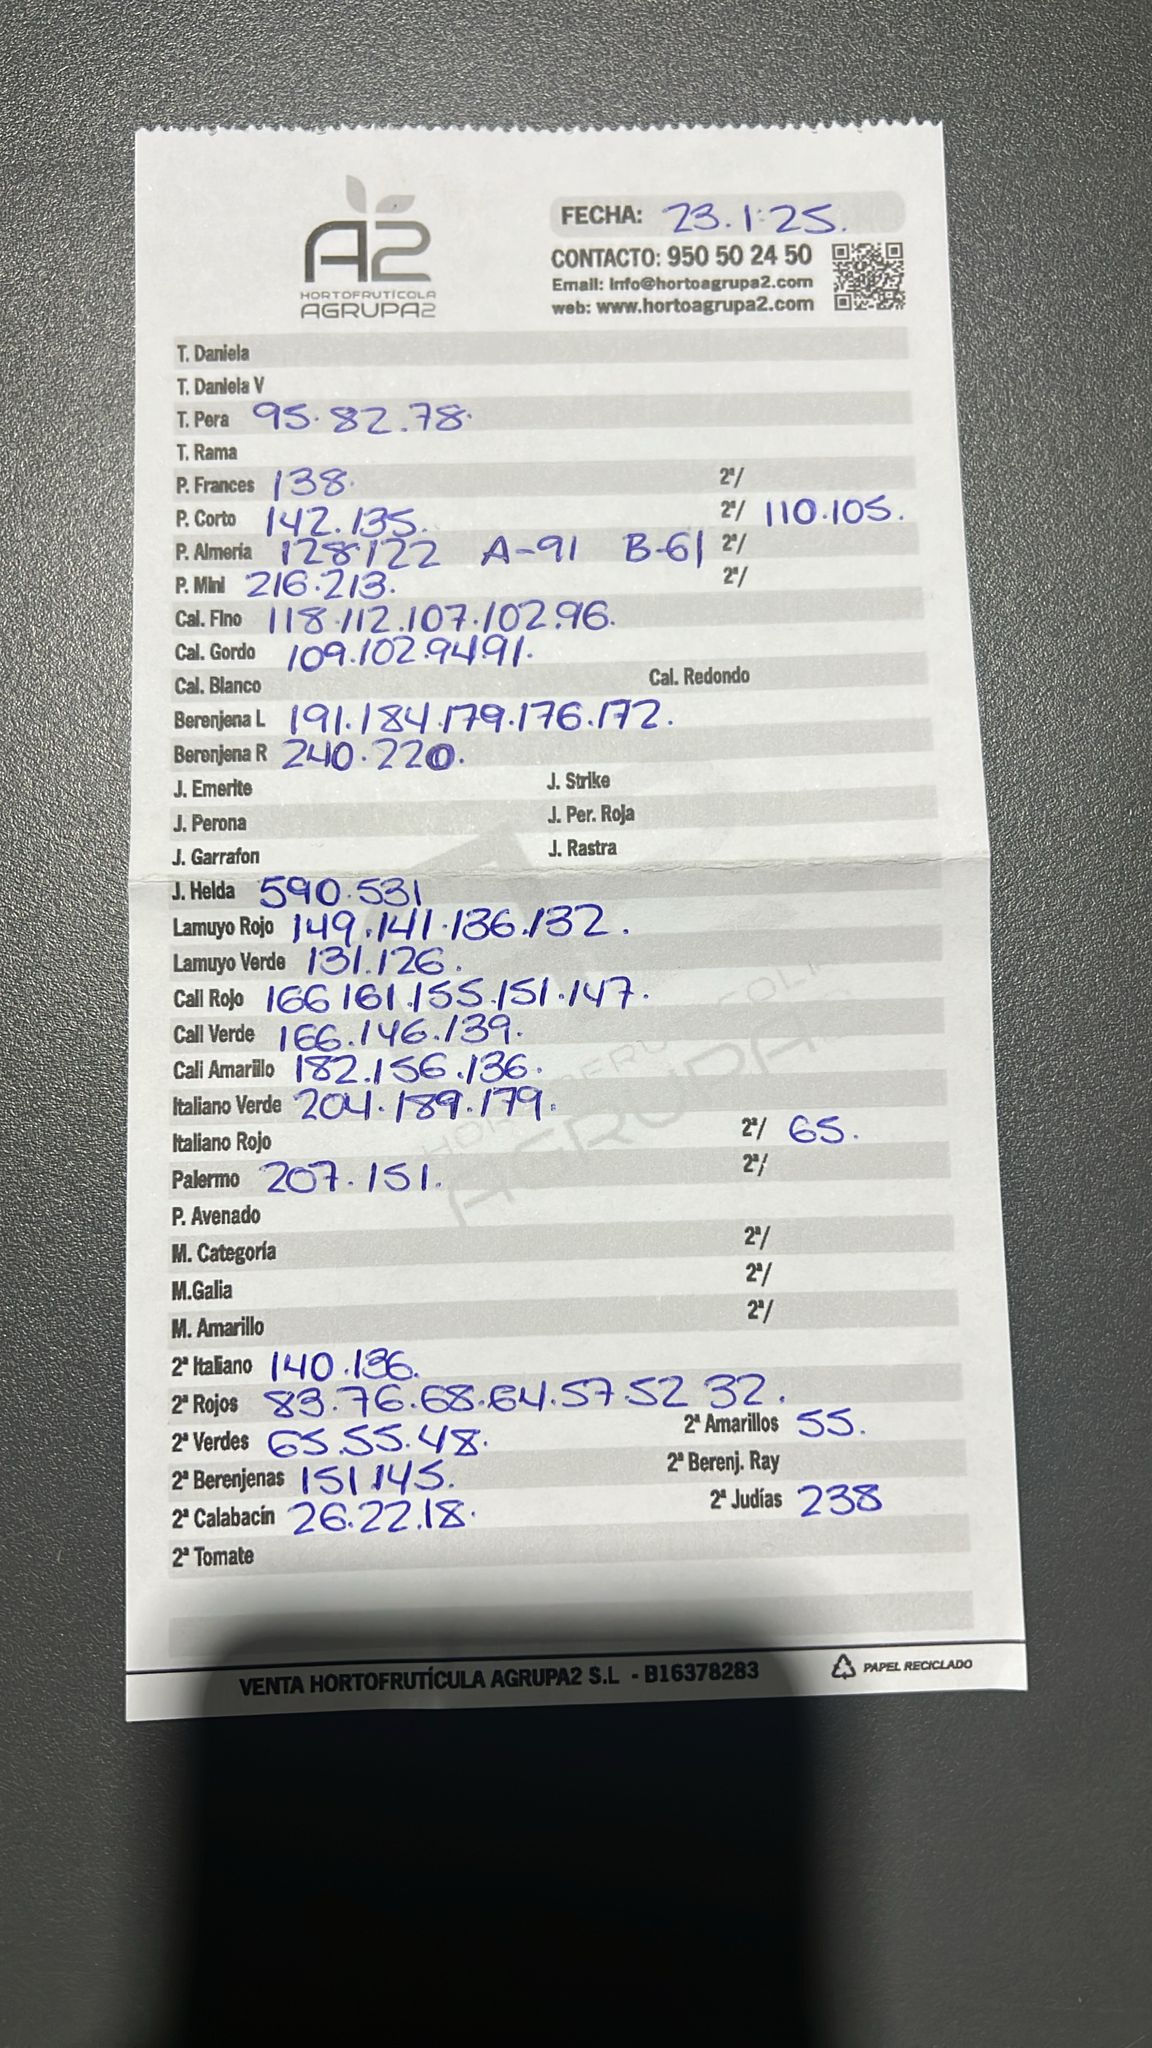 A2
HORTOFRUTÍCOLA
AGRUPA2
FECHA: 23.1.25.
CONTACTO: 950 50 24 50
Email: info@hortoagrupa2.com
web: www.hortoagrupa2.com
T. Daniela
T. Daniela V
T. Pera 95.82.78.
T. Rama
P. Frances 138. 2ª/
P. Corto 142.135. 2ª/ 110.105.
P. Almería 128.122 A-91 B-61 2ª/
P. Mini 216.213. 2ª/
Cal. Fino 118.112.107.102.96.
Cal. Gordo 109.102.94.91.
Cal. Blanco Cal. Redondo
Berenjena L 191.184.179.176.172.
Berenjena R 240.220.
J. Emerite J. Strike
J. Perona J. Per. Roja
J. Garrafon J. Rastra
J. Helda 590.531
Lamuyo Rojo 149.141.136.132.
Lamuyo Verde 131.126.
Cali Rojo 166 161.155.151.147.
Cali Verde 166.146.139.
Cali Amarillo 182.156.136.
Italiano Verde 204.189.179.
Italiano Rojo 2ª/ 65.
Palermo 207.151. 2ª/
P. Avenado
M. Categoría 2ª/
M.Galia 2ª/
M. Amarillo 2ª/
2ª Italiano 140.136.
2ª Rojos 83.76.68.64.57.52 32.
2ª Verdes 65.55.48. 2ª Amarillos 55.
2ª Berenjenas 151.145. 2ª Berenj. Ray
2ª Calabacín 26.22.18. 2ª Judías 238
2ª Tomate
VENTA HORTOFRUTÍCULA AGRUPA2 S.L - B16378283 PAPEL RECICLADO